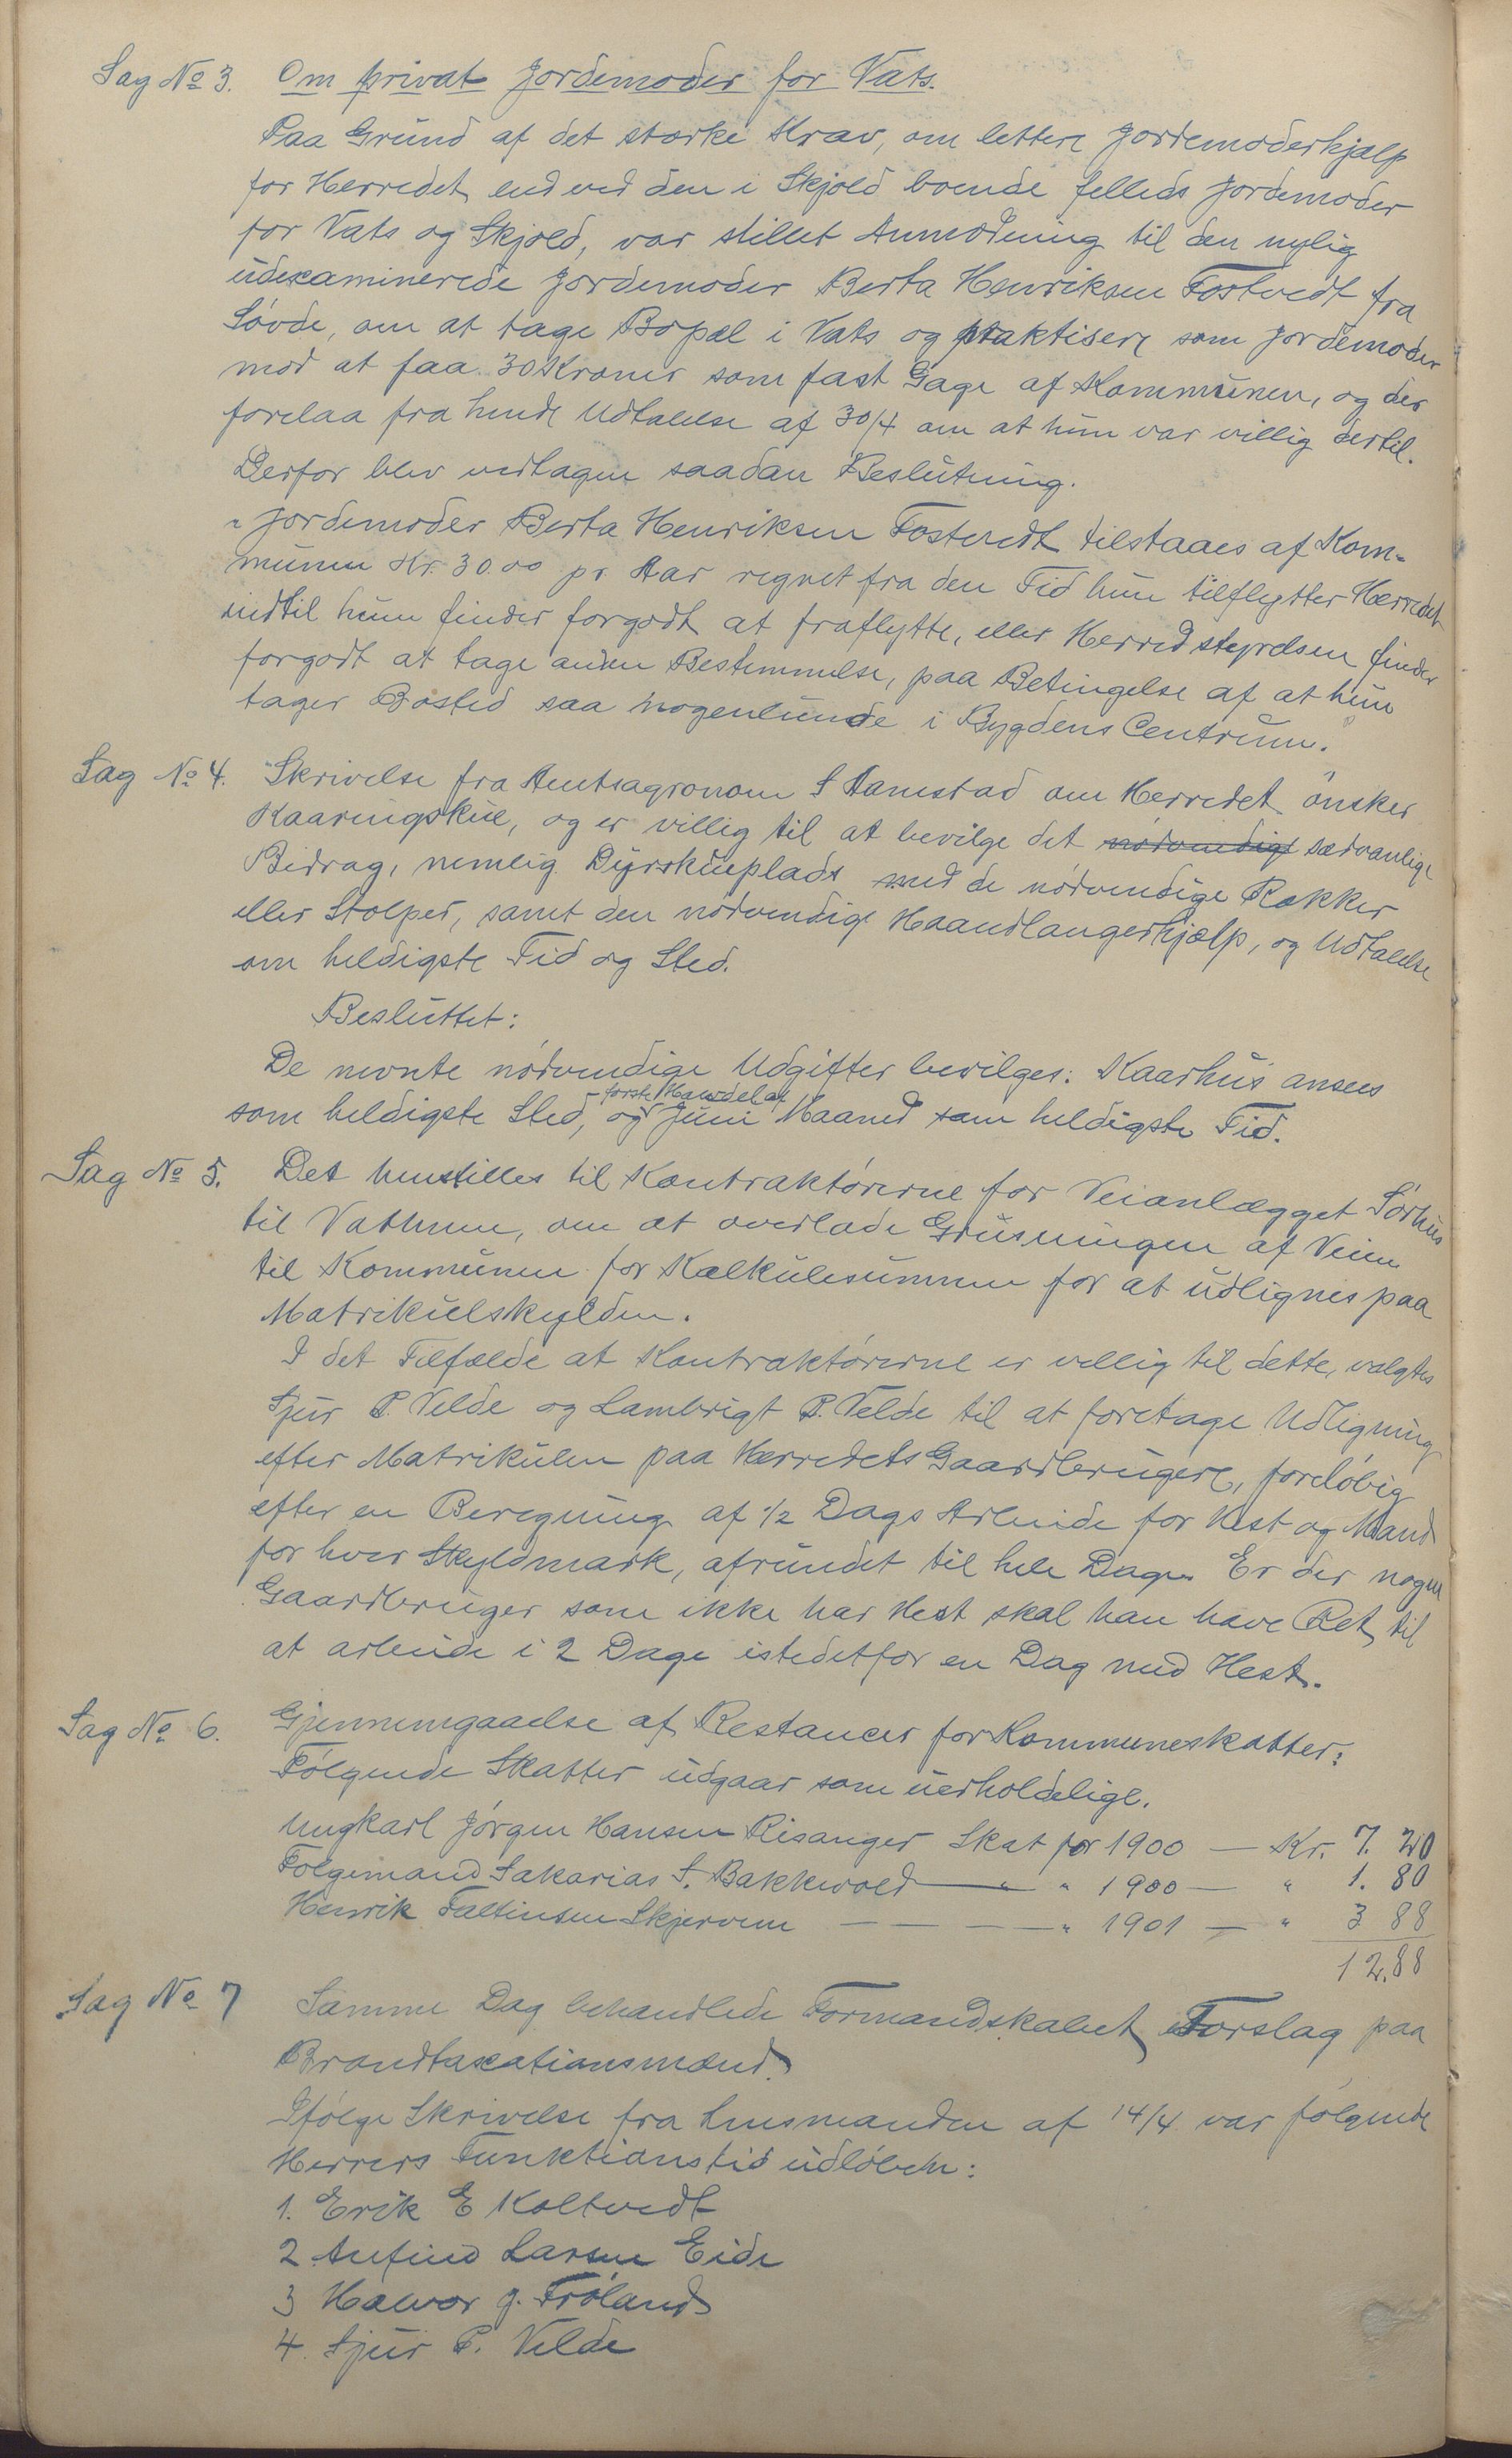 Sag No 3. Om privat Jordemoder for Vats.
Paa Grund af det stærke Krav, om lettere Jordemoderhjælp
for Herredet end ved den i Skjold boende fælleds Jordemoder
for Vats og Skjold, var stillet Anmodning til den nylig
udexaminerede Jordemoder Berta Henriksen Fostvedt fra
Søvde, om at tage Bopæl i Vats og praktisere som Jordemoder
mod at faa 30 Kroner som fast Gage af Kommunen, og der
forelaa fra hende Udtalelse af 30/4 om at hun var villig dertil.
Derfor blev vedtagen saadan Beslutning.
"Jordemoder Berta Henriksen Fostvedt tilstaaes af Kom-
munen Kr. 30.00 pr. Aar regnet fra den Tid hun tilflytter Herredet
indtil hun finder forgodt at fraflytte, eller Herredstyrelsen finder
forgodt at tage anden Bestemmelse, paa Betingelse af at hun
tager Bosted saa nogenlunde i Bygdens Centrum."
Sag No 4. Skrivelse fra Amtsagronom S Aamstad om Herredet ønsker
Kaaringskue, og er villig til at bevilge det nødvendige sædvanlige
Bidrag, nemlig Dyrskueplads med de nødvendige Rækker
eller Stolper, samt den nødvendige Haandlangerhjælp, og Udtalelse
om heldigste Tid og Sted.
Besluttet:
De nævnte nødvendige Udgifter bevilges: Kaarhus ansees
som heldigste Sted, og første Halvdel af Juni Maaned som heldigste Tid.
Sag No 5. Det henstilles til Kontraktørerne for Veianlægget Sørhus
til Vathnem, om at overlade Grusningen af Veien
til Kommunen for Kalkulesummen for at udlignes paa
Matrikulskylden.
I det Tilfælde at Kontraktørerne er villig til dette, valgtes
Sjur P. Velde og Lambrigt P. Velde til at foretage Udligning
efter Matrikulen paa Herredets Gaardbrugere, foreløbig
efter en Beregning af 1/2 Dags Arbeide for Hest og Mand
for hver Skyldmark, afrundet til hele Dage. Er der nogen
Gaardbruger som ikke har Hest skal han have Ret til
at arbeide i 2 Dage istedetfor en Dag med Hest.
Sag No 6. Gjennemgaaelse af Restancer for Kommuneskatter:
Følgende Skatter udgaar som uerholdelige.
Ungkarl Jørgen Hansen Risanger Skat for 1900 — Kr. 7. 20
Følgemand Sakarias S. Bakkevold — " " 1900 — " 1. 80
Henrik Faltinsen Skjerven — — — — " 1901 — " 3 88
12.88
Sag No 7 Samme Dag behandlede Formandskabet Forslag paa
Brandtaxationsmænd.
Ifølge Skrivelse fra Lensmanden af 14/4 var følgende
Herrers Funktionstid udløben:
1. Erik E Koltvedt
2 Anfind Larsen Eide
3 Halvor J. Frøland
4. Sjur P. Velde